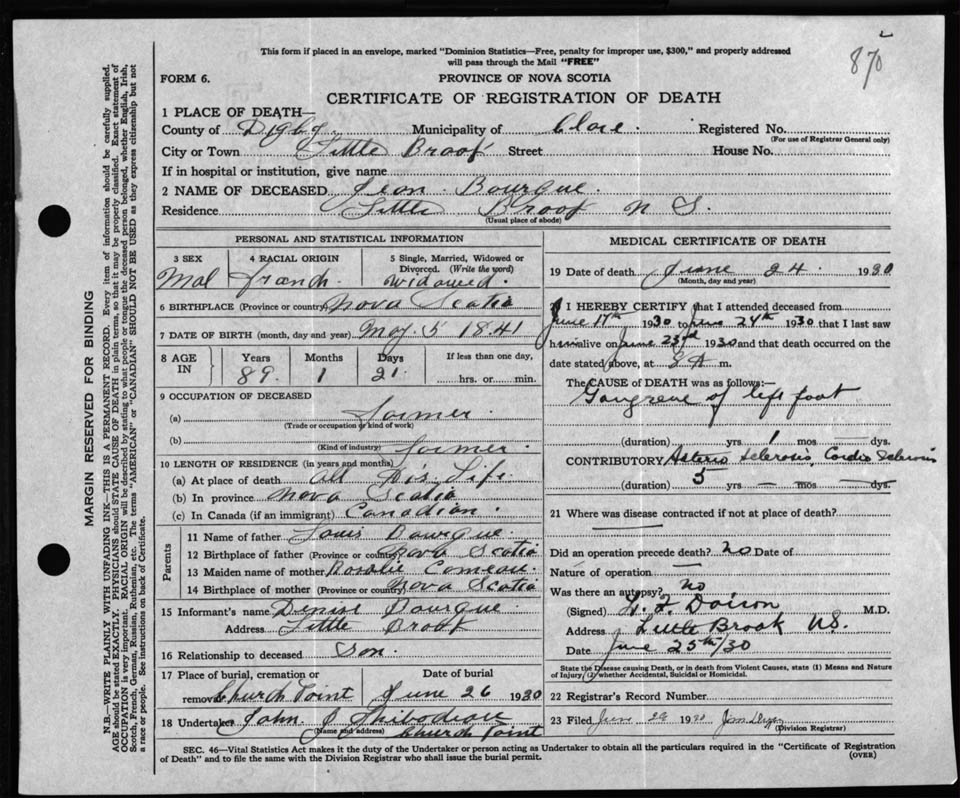 870
This form if placed in an envelope, marked "Dominion Statistics—Free, penalty for improper use, $300," and properly addressed
will pass through the Mail "FREE"
FORM 6. PROVINCE OF NOVA SCOTIA
CERTIFICATE OF REGISTRATION OF DEATH
1 PLACE OF DEATH—
County of Digby Municipality of Clare. Registered No.
(For use of Registrar General only)
City or Town Little Broof Street House No.
If in hospital or institution, give name
2 NAME OF DECEASED Jean Bourque.
Residence Little Broof N S.
(Usual place of abode)
PERSONAL AND STATISTICAL INFORMATION
3 SEX 4 RACIAL ORIGIN 5 Single, Married, Widowed or
Divorced. (Write the word)
Mal Franch widowed.
6 BIRTHPLACE (Province or country) Nova Scotia
7 DATE OF BIRTH (month, day and year) May 5 1841
8 AGE IN Years Months Days If less than one day,
89 1 21 hrs. or min.
9 OCCUPATION OF DECEASED
(a) Farmer.
(Trade or occupation or kind of work)
(b) Farmer.
(Kind of industry)
10 LENGTH OF RESIDENCE (in years and months)
(a) At place of death all his Life
(b) In province Nova Scotia
(c) In Canada (if an immigrant) Canadian.
Parents
11 Name of father Louis Bourque
12 Birthplace of father (Province or country) Nova Scotia
13 Maiden name of mother Rosalie Comeau.
14 Birthplace of mother (Province or country) Nova Scotia
15 Informant's name Denise Bourque.
Address Little Broof
16 Relationship to deceased Son.
17 Place of burial, cremation or Date of burial
removal Church Point June 26 1930
18 Undertaker John J Thibodeau
(Name and address) Church Point
MEDICAL CERTIFICATE OF DEATH
19 Date of death June 24. 1930
(Month, day and year)
I HEREBY CERTIFY that I attended deceased from
June 17th 1930 to June 24th 1930 that I last saw
him alive on June 23rd 1930 and that death occurred on the
date stated above, at m.
The CAUSE OF DEATH was as follows:—
Gangrene of left foot
(duration) yrs 1 mos dys.
CONTRIBUTORY Arterio Sclerosis, Cardio Sclerosis
(duration) 5 yrs — mos — dys.
21 Where was disease contracted if not at place of death?
—
Did an operation precede death? No Date of
Nature of operation —
Was there an autopsy? No
(Signed) M.D.
Address Little Brook NS.
Date June 25th/30
State the Disease causing Death, or in death from Violent Causes, state (1) Means and Nature
of Injury, (2) whether Accidental, Suicidal or Homicidal.
22 Registrar's Record Number
23 Filed June 29 19
(Division Registrar)
SEC. 46—Vital Statistics Act makes it the duty of the Undertaker or person acting as Undertaker to obtain all the particulars required in the "Certificate of Registration
of Death" and to file the same with the Division Registrar who shall issue the burial permit. (OVER)
MARGIN RESERVED FOR BINDING
N.B.—WRITE PLAINLY WITH UNFADING INK—THIS IS A PERMANENT RECORD. Every item of information should be carefully supplied.
AGE should be stated EXACTLY. PHYSICIANS should STATE CAUSE OF DEATH in plain terms, so that it may be properly classified. Exact statement of
OCCUPATION is very important. RACIAL ORIGIN will be described by stating to what people or tongue the deceased person belonged, whether English, Irish,
Scotch, French, German, Russian, Ruthenian, etc. The terms "AMERICAN" or "CANADIAN" SHOULD NOT BE USED as they express citizenship but not
a race or people. See instructions on back of Certificate.